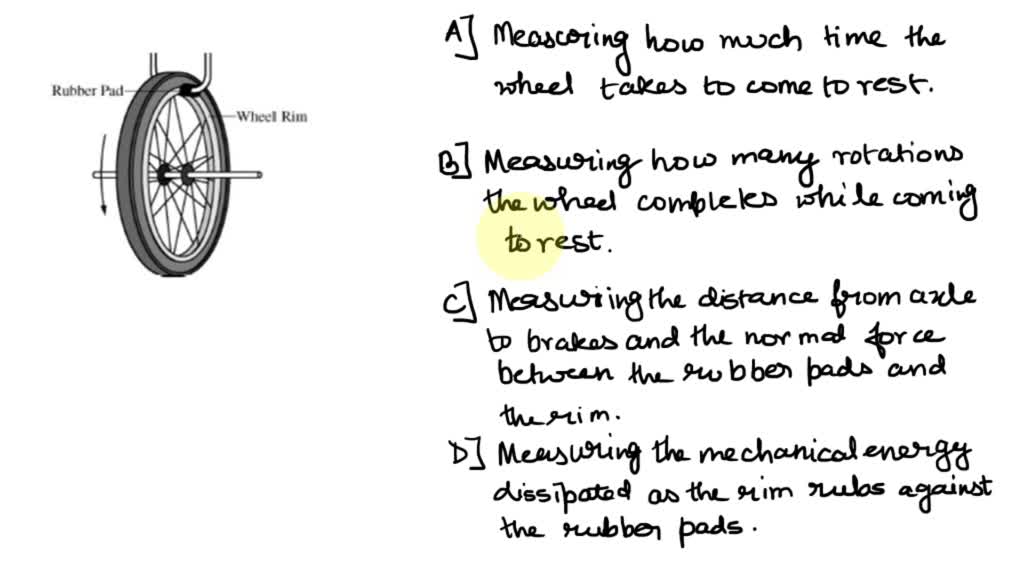 Rubber Pad
Wheel Rim
A] Measuring how much time the
wheel takes to come to rest.
B] Measuring how many rotations
the wheel completes while coming
to rest.
C] Measuring the distance from axle
to brakes and the normal force
between the rubber pads and
the rim.
D] Measuring the mechanical energy
dissipated as the rim rubs against
the rubber pads.